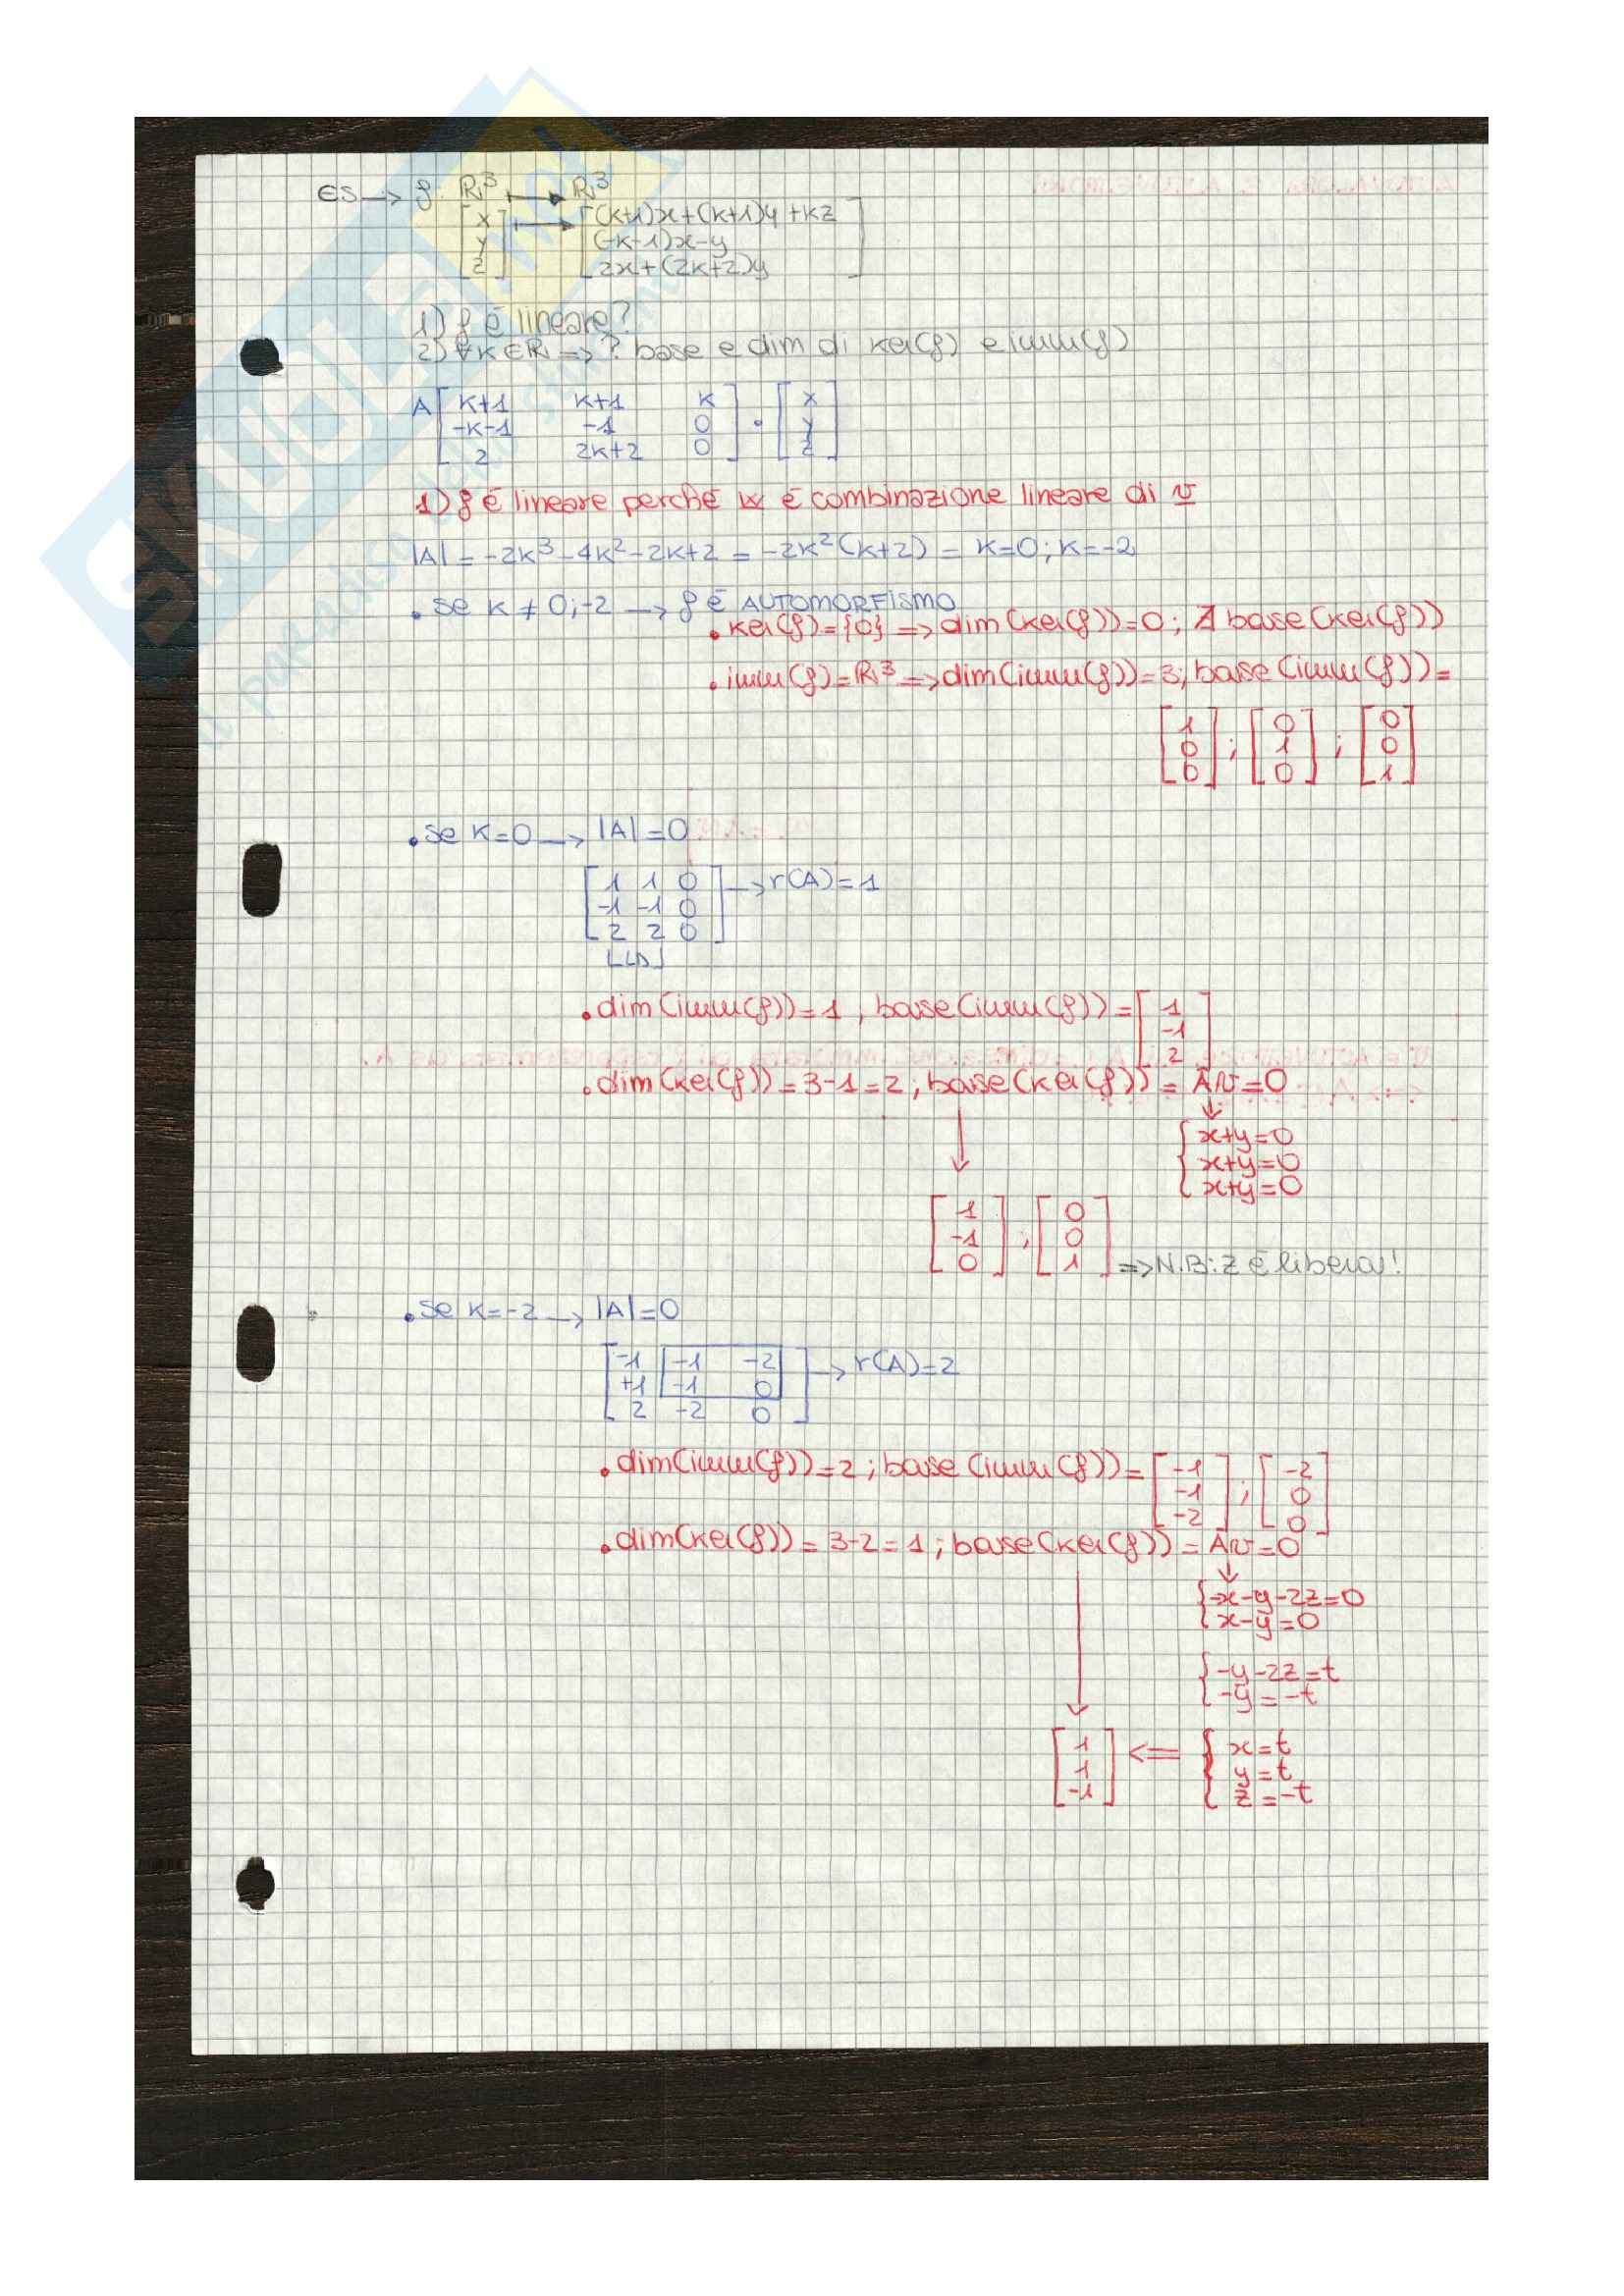 ES → f: ℝ³ ↦ ℝ³
[x y z] ↦ [(k+1)x+(k+1)y+kz
(-k-1)x-y
2x+(2k+2)y]
1) f è lineare?
2) ∀k∈ℝ => ? base e dim di ker(f) e imm(f)
A [k+1 k+1 k] · [x]
[-k-1 -1 0] [y]
[2 2k+2 0] [z]
1) f è lineare perché w è combinazione lineare di v
|A| = -2k³-4k²-2k+2 = -2k²(k+2) = k=0; k=-2
• se k ≠ 0;-2 → f è AUTOMORFISMO
• ker(f)={0} => dim(ker(f))=0; ∄ base(ker(f))
• imm(f)=ℝ³ => dim(imm(f))=3; base(imm(f))=
[1 0 0] ; [0 1 0] ; [0 0 1]
• se k=0 → |A|=0
[1 1 0] → r(A)=1
[-1 -1 0]
[2 2 0]
LD
• dim(imm(f))=1, base(imm(f))=[1 -1 2]
• dim(ker(f))=3-1=2; base(ker(f))= Av=0
{x+y=0
x+y=0
x+y=0
[1 -1 0] ; [0 0 1] => N.B: z è libera!
• se k=-2 → |A|=0
[-1 -1 -2] → r(A)=2
[+1 -1 0]
[2 -2 0]
• dim(imm(f))=2; base(imm(f))=[-1 -1 -2] ; [-2 0 0]
• dim(ker(f))=3-2=1; base(ker(f))= Av=0
{-x-y-2z=0
x-y=0
{-y-2z=t
-y=-t
[1 1 -1] <= {x=t
y=t
z=-t